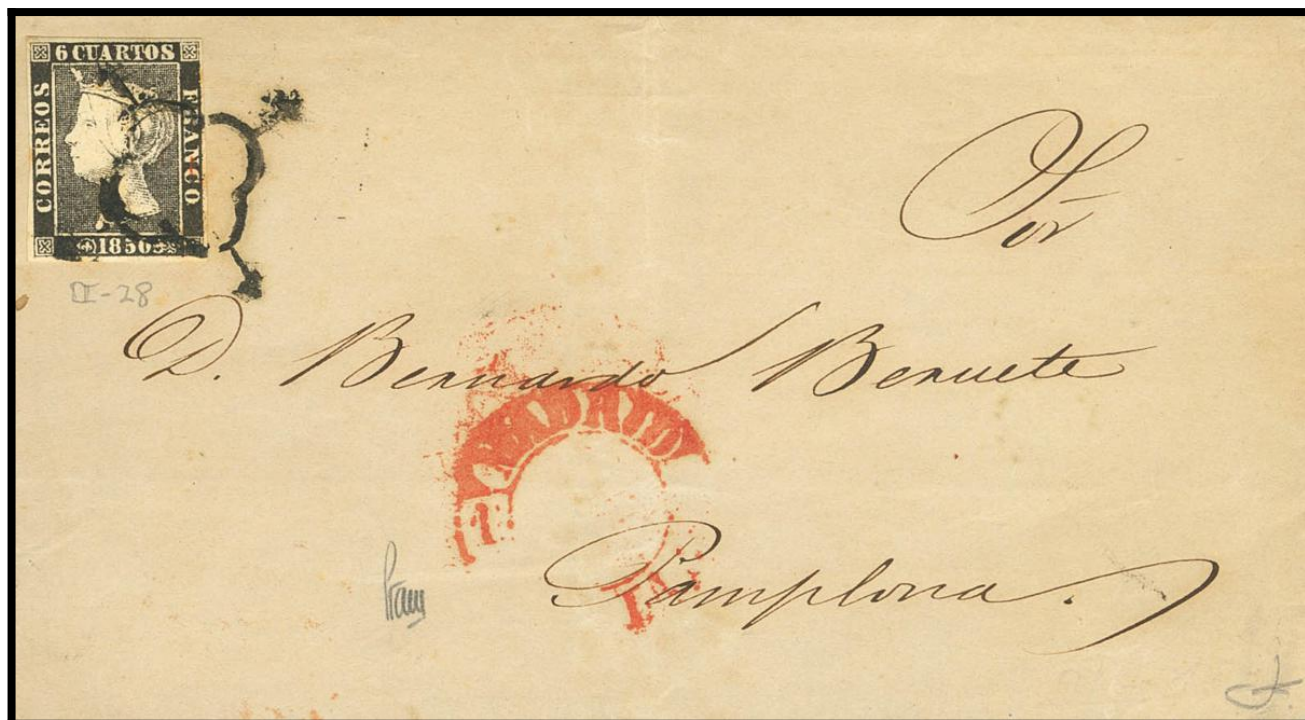 6 CUARTOS
CORREOS
FRANCO
1850
II-28
Sor
D. Bernardo Beruete
Pamplona.